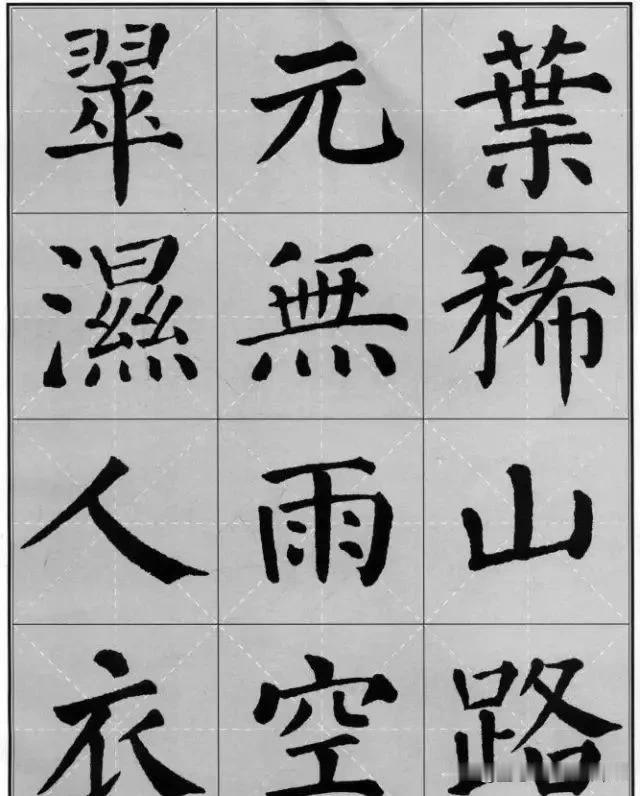 葉稀山路
元無雨空
翠濕人衣